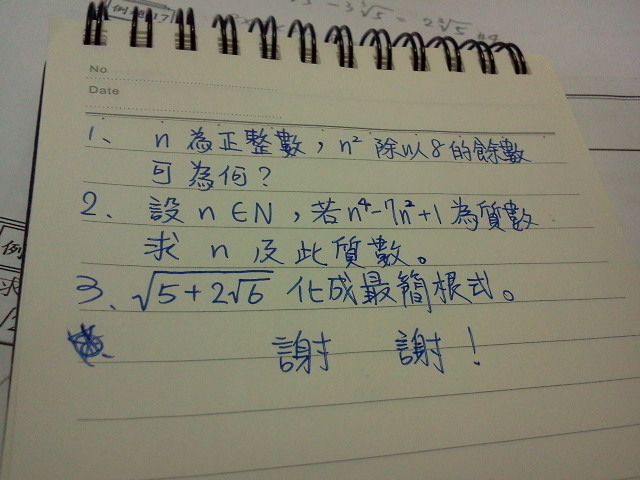 例題17
-3∛5 = 2∛5
No
Date
1、 n 為正整數，n² 除以8的餘數
可為何？
2、設 n∈N，若n⁴-7n²+1為質數
求 n 及此質數。
3、√(5+2√6) 化成最簡根式。
謝 謝！
例
求